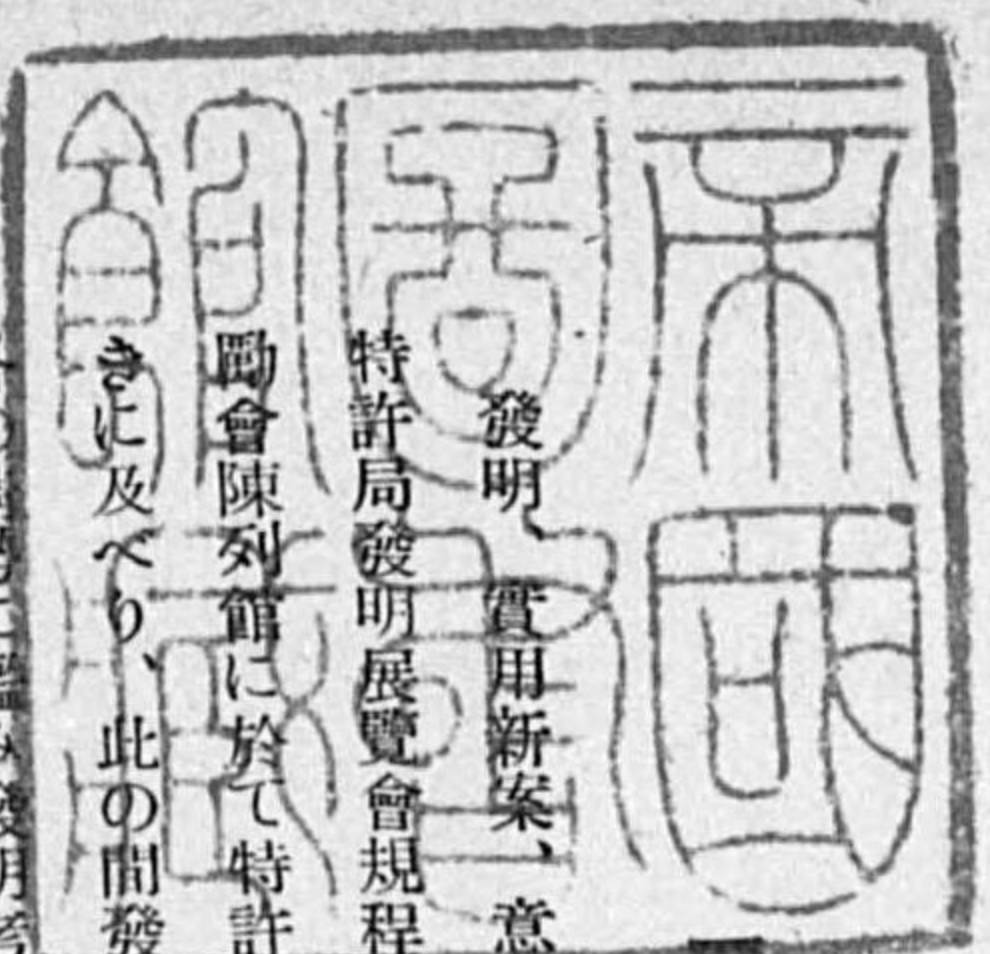 帝國
圖書
館藏
發明、實用新案、意
特許局發明展覽會規程
勵會陳列館に於て特許
きに及べり、此の間發
發明考